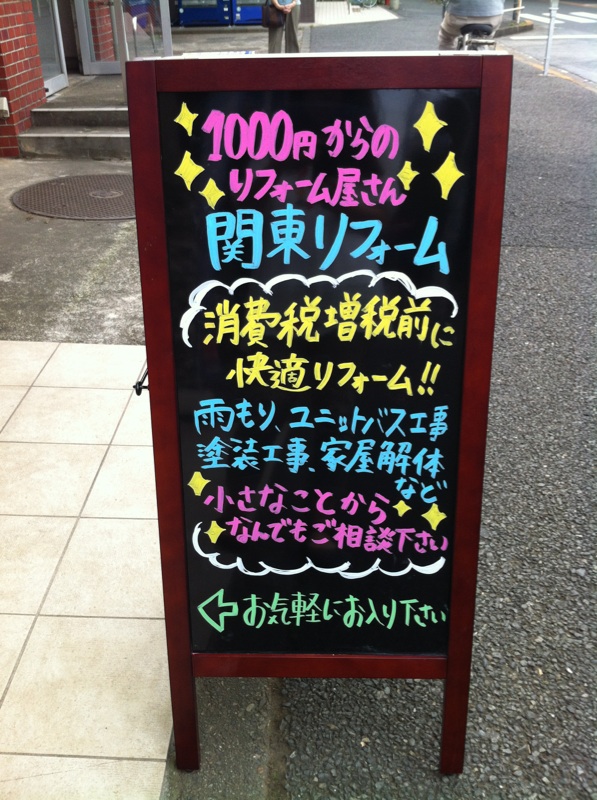 1000円からの
リフォーム屋さん
関東リフォーム
消費税増税前に
快適リフォーム!!
雨もり、ユニットバス工事
塗装工事、家屋解体
など
小さなことから
なんでもご相談下さい
お気軽にお入り下さい